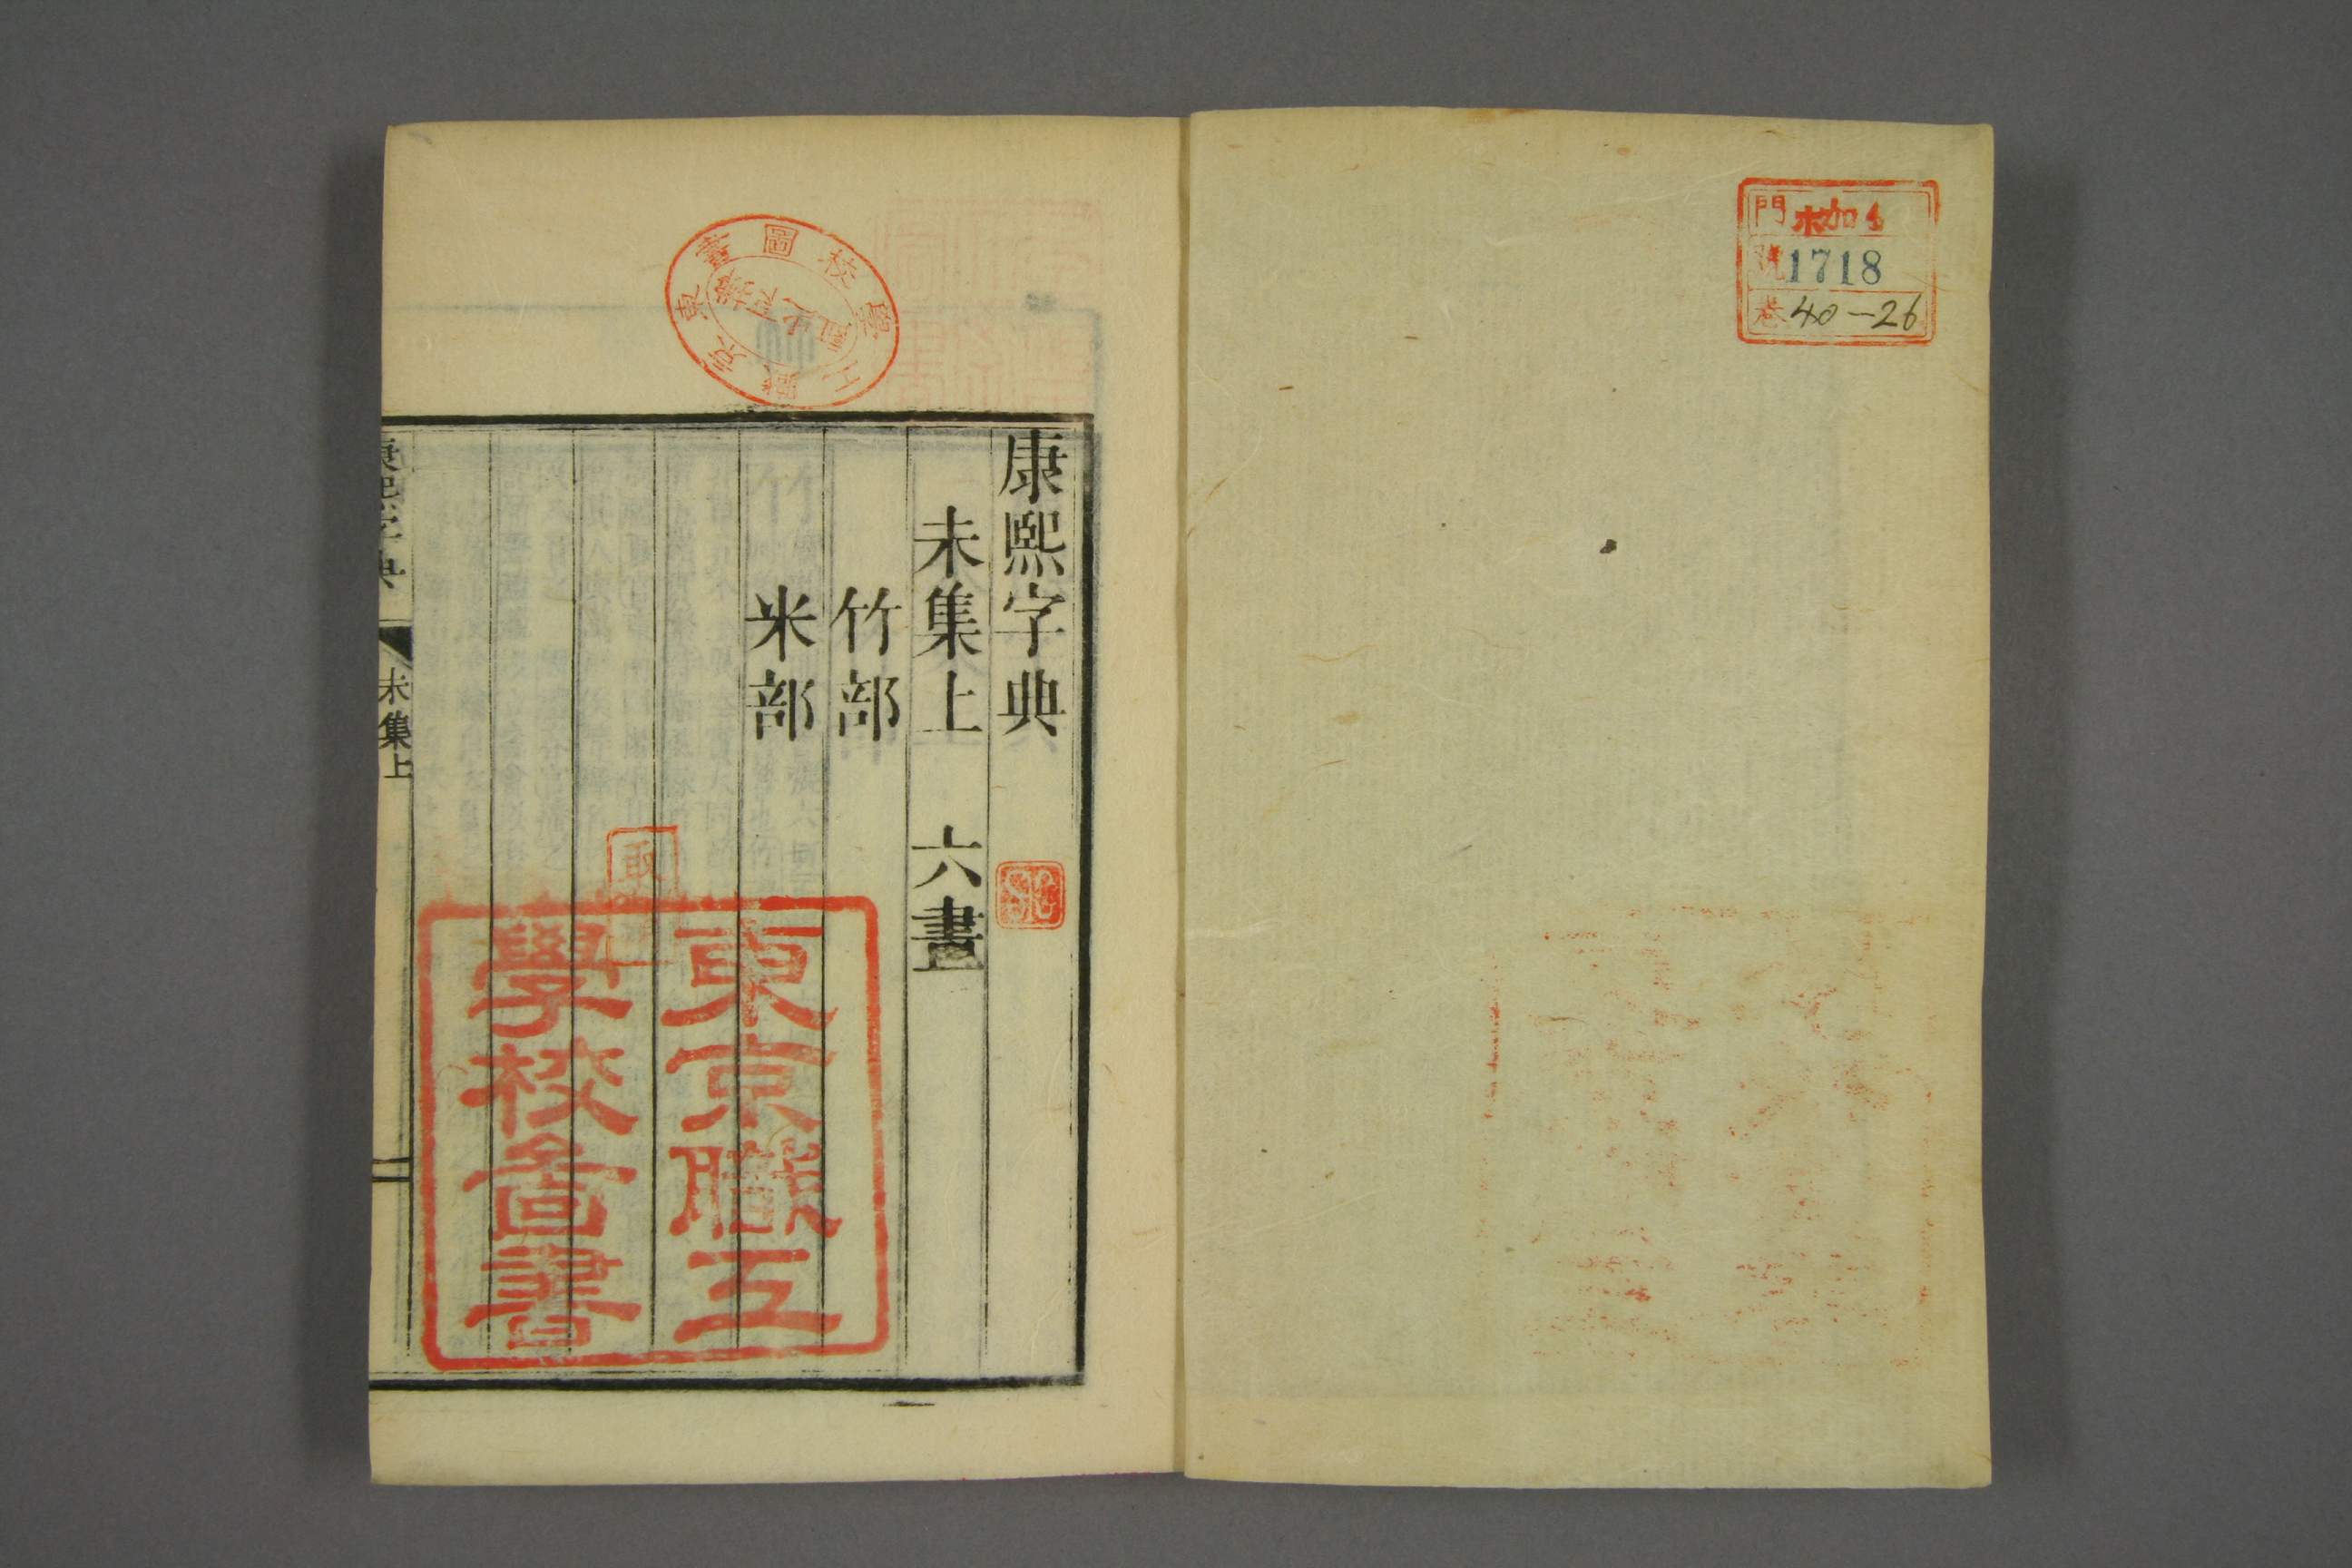 門 加
號 1718
巻 40-26
康熙字典
未集上 六畫
竹部
米部
東京職工
學校圖書
東京職工學校圖書
取
康熙字典
未集上